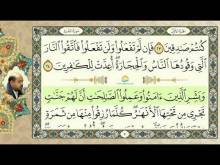 كُنتُمْ صَٰدِقِينَ ٢٣ فَإِن لَّمْ تَفْعَلُوا۟ وَلَن تَفْعَلُوا۟ فَٱتَّقُوا۟ ٱلنَّارَ
ٱلَّتِى وَقُودُهَا ٱلنَّاسُ وَٱلْحِجَارَةُ أُعِدَّتْ لِلْكَٰفِرِينَ ٢٤
وَبَشِّرِ ٱلَّذِينَ ءَامَنُوا۟ وَعَمِلُوا۟ ٱلصَّٰلِحَٰتِ أَنَّ لَهُمْ جَنَّٰتٍ
تَجْرِى مِن تَحْتِهَا ٱلْأَنْهَٰرُ كُلَّمَا رُزِقُوا۟ مِنْهَا مِن ثَمَرَةٍ